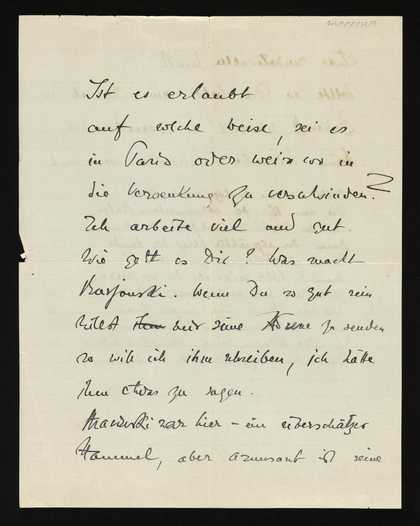 Ist es erlaubt
auf solche Weise, sei es
in Paris oder weiss wo in
die Versenkung zu verschwinden?
Ich arbeite viel und gut.
Wie geht es Dir? Was macht
Wenn Du so gut sein
willst mir seine zu senden
so will ich ihm schreiben, ich hätte
ihm etwas zu sagen.
war hier - ein überschätzter
Hammel, aber amusant ist seine